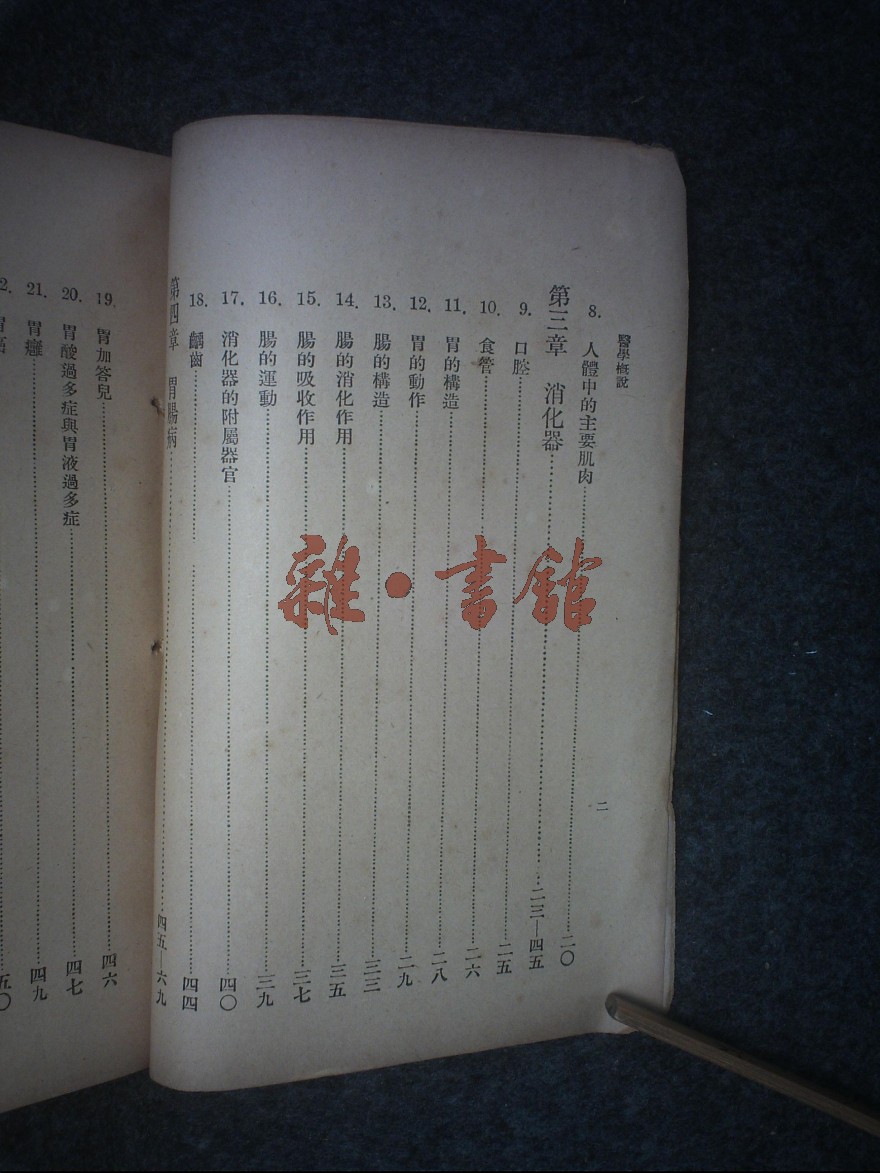 醫學槪說
二
8. 人體中的主要肌肉…………二〇
第三章 消化器…………二三—四五
9. 口腔…………二五
10. 食管…………二六
11. 胃的構造…………二八
12. 胃的動作…………二九
13. 腸的構造…………三三
14. 腸的消化作用…………三五
15. 腸的吸收作用…………三七
16. 腸的運動…………三九
17. 消化器的附屬器官…………四〇
18. 齲齒…………四四
第四章 胃腸病…………四五—六九
19. 胃加答兒…………四六
20. 胃酸過多症與胃液過多症…………四七
21. 胃癰…………四九
2. 胃癌…………五〇
雜·書館